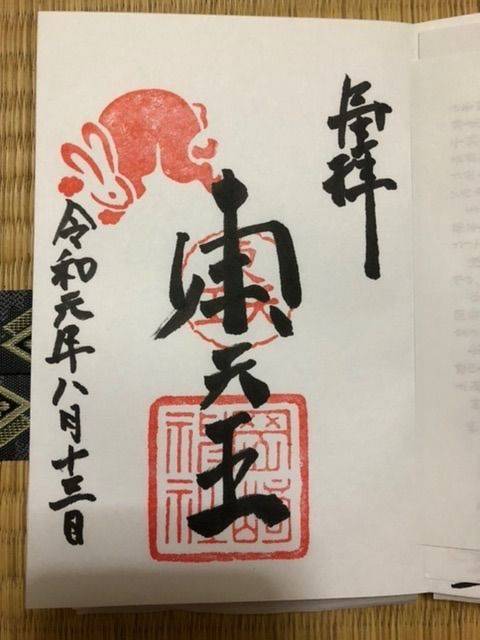 奉拝
東天王
岡崎神社
令和元年八月十三日